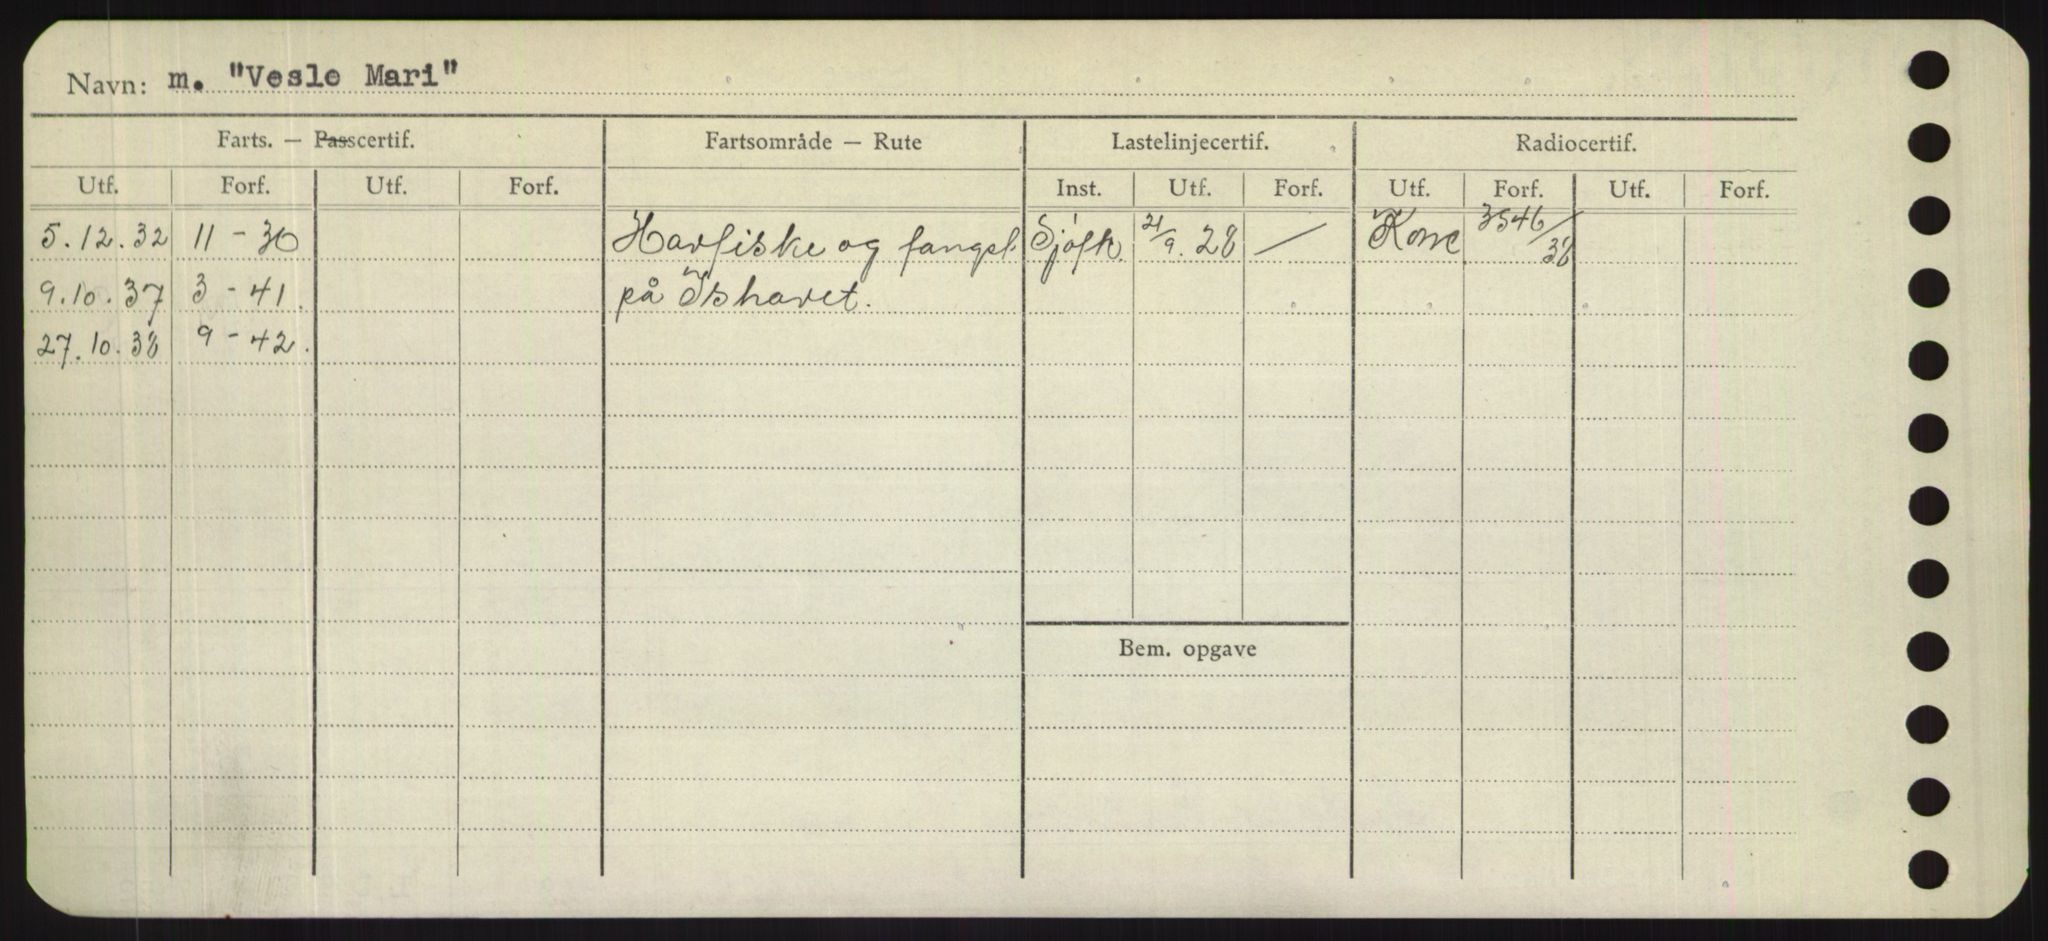 Navn: m. "Vesle Mari"
Farts. — Passcertif. Fartsområde — Rute Lastelinjecertif. Radiocertif.
Utf. Forf. Utf. Forf. Inst. Utf. Forf. Utf. Forf. Utf. Forf.
5.12.32 11 - 36 Havfiske og fangst Sjøfk. 21/9. 28 / Korr 3546/38
9.10.37 3 - 41. på Ishavet.
27.10.38 9 - 42.
Bem. opgave